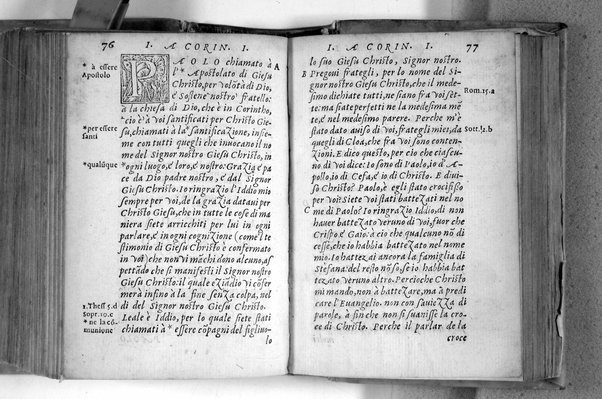 76 I. A CORIN. I.
* à essere
Apostolo
PAOLO chiamato à
l'* Apostolato di Giesu
Christo, per volõtà di Dio,
è Sostene nostro fratello:
à la chiesa di Dio, che è in Corintho,
cio è à voi santificati per Christo Gie-
*per essere
santi
su, chiamati à la* santificazione, insie-
me con tutti quegli che inuocano il no
me del Signor nostro Giesu Christo, in
*qualũque
*ogni luogo, è loro, è nostro: Grazia è pa
ce da Dio padre nostro, è dal Signor
Giesu Christo. Io ringrazio l'Iddio mio
sempre per voi, de la grazia dataui per
Christo Giesu, che in tutte le cose di ma
niera siete arricchiti per lui in ogni
parlare, è in ogni cognizione (come l te
stimonio di Giesu Christo è confermato
in voi) che non vi mãchi dono alcuno, as
pettãdo che si manifesti il Signor nostro
Giesu Christo: il quale eziadio vi cõfer
merà infino à la fine senza colpa, nel
di del Signor nostro Giesu Christo.
1. Thess. 5. d
sopr. 10. c
* ne la cõ-
munione
Leale è Iddio, per lo quale siete stati
chiamati à* essere cõpagni del figliuo-
lo
I. A CORIN. I. 77
A
lo suo Giesu Christo, Signor nostro.
B Pregoui frategli, per lo nome del Si-
gnor nostro Giesu Christo, che il mede-
Rom. 15. a
simo dichiate tutti, ne siano fra voi sètte:
ma siate perfetti ne la medesima mẽ
te, è nel medesimo parere. Perche m'è
Sott. 12. b
stato dato auiso di voi, frategli miei, da
quegli di Cloa, che fra voi sono conten-
zioni. E dico questo, per cio che ciascu-
no di voi dice: Io sono di Paolo, io d'A-
pollo, io di Cefa, è io di Christo. E diui-
so Christo? Paolo, è egli stato crocifisso
per voi? Siete voi stati battezati nel no
C me di Paolo? Io ringrazio Iddio, di non
hauer battezato veruno di voi, fuor che
Crispo è Gaio: à cio che qualcuno nõ di
cesse, che io habbia battezato nel nome
mio. Io battezai ancora la famiglia di
Stefana: del resto nõ so, se io habbia bat
tezato veruno altro. Percioche Christo
nõ mi mandò, non à battezare, ma à predi
care l'Euangelio. non con sauiezza di
parole, à fin che non si suanisse la cro-
ce di Christo. Perche il parlar de la
croce